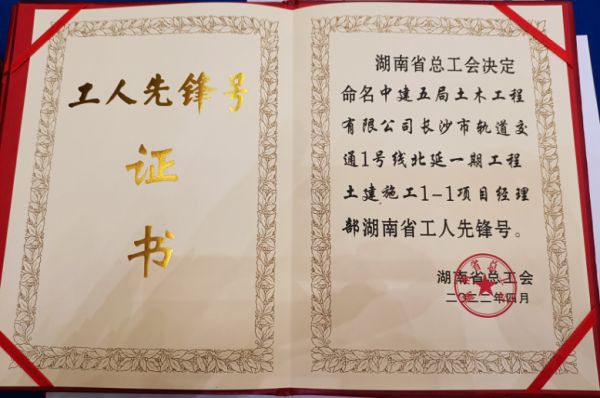 工人先锋号
证
书
湖南省总工会决定
命名中建五局土木工程
有限公司长沙市轨道交
通1号线北延一期工程
土建施工1-1项目经理
部湖南省工人先锋号。
湖南省总工会
二〇二二年四月